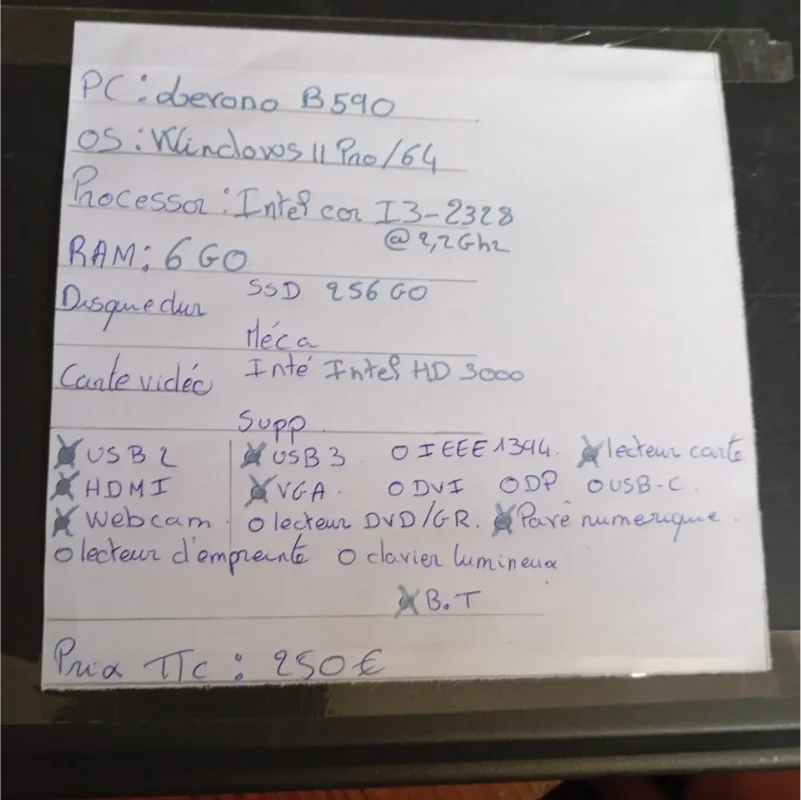 PC : lenovo B590
OS : Windows 11 Pro/64
Processor : Intel cor I3-2328
@ 2,2Ghz
RAM : 6 GO
Disque dur SSD 256 GO
Méca
Carte vidéo Inté Intel HD 3000
Supp
USB 2 USB 3 O IEEE 1394. lecteur carte
HDMI VGA. O DVI O DP O USB-C.
Webcam. O lecteur DVD/GR. Pavé numerique.
O lecteur d'empreinte O clavier lumineux
B.T
Prix TTc : 250€